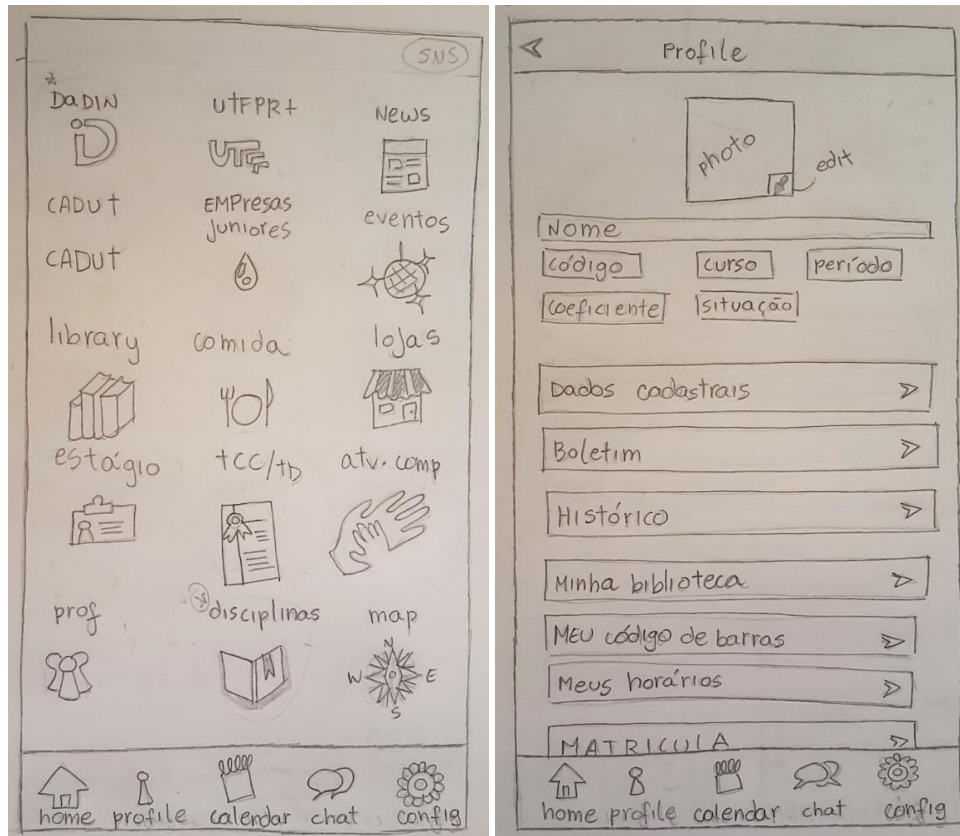 SNS
DaDIN UTFPR+ News
D UTF
CADUT EMPresas Juniores eventos
CADUT
library comida lojas
estágio TCC/TD atv. comp
prof disciplinas map
N
W E
S
home profile calendar chat config
Profile
photo
edit
Nome
código curso período
coeficiente situação
Dados cadastrais
Boletim
Histórico
Minha biblioteca
MEU código de barras
Meus horários
MATRICULA
home profile calendar chat config